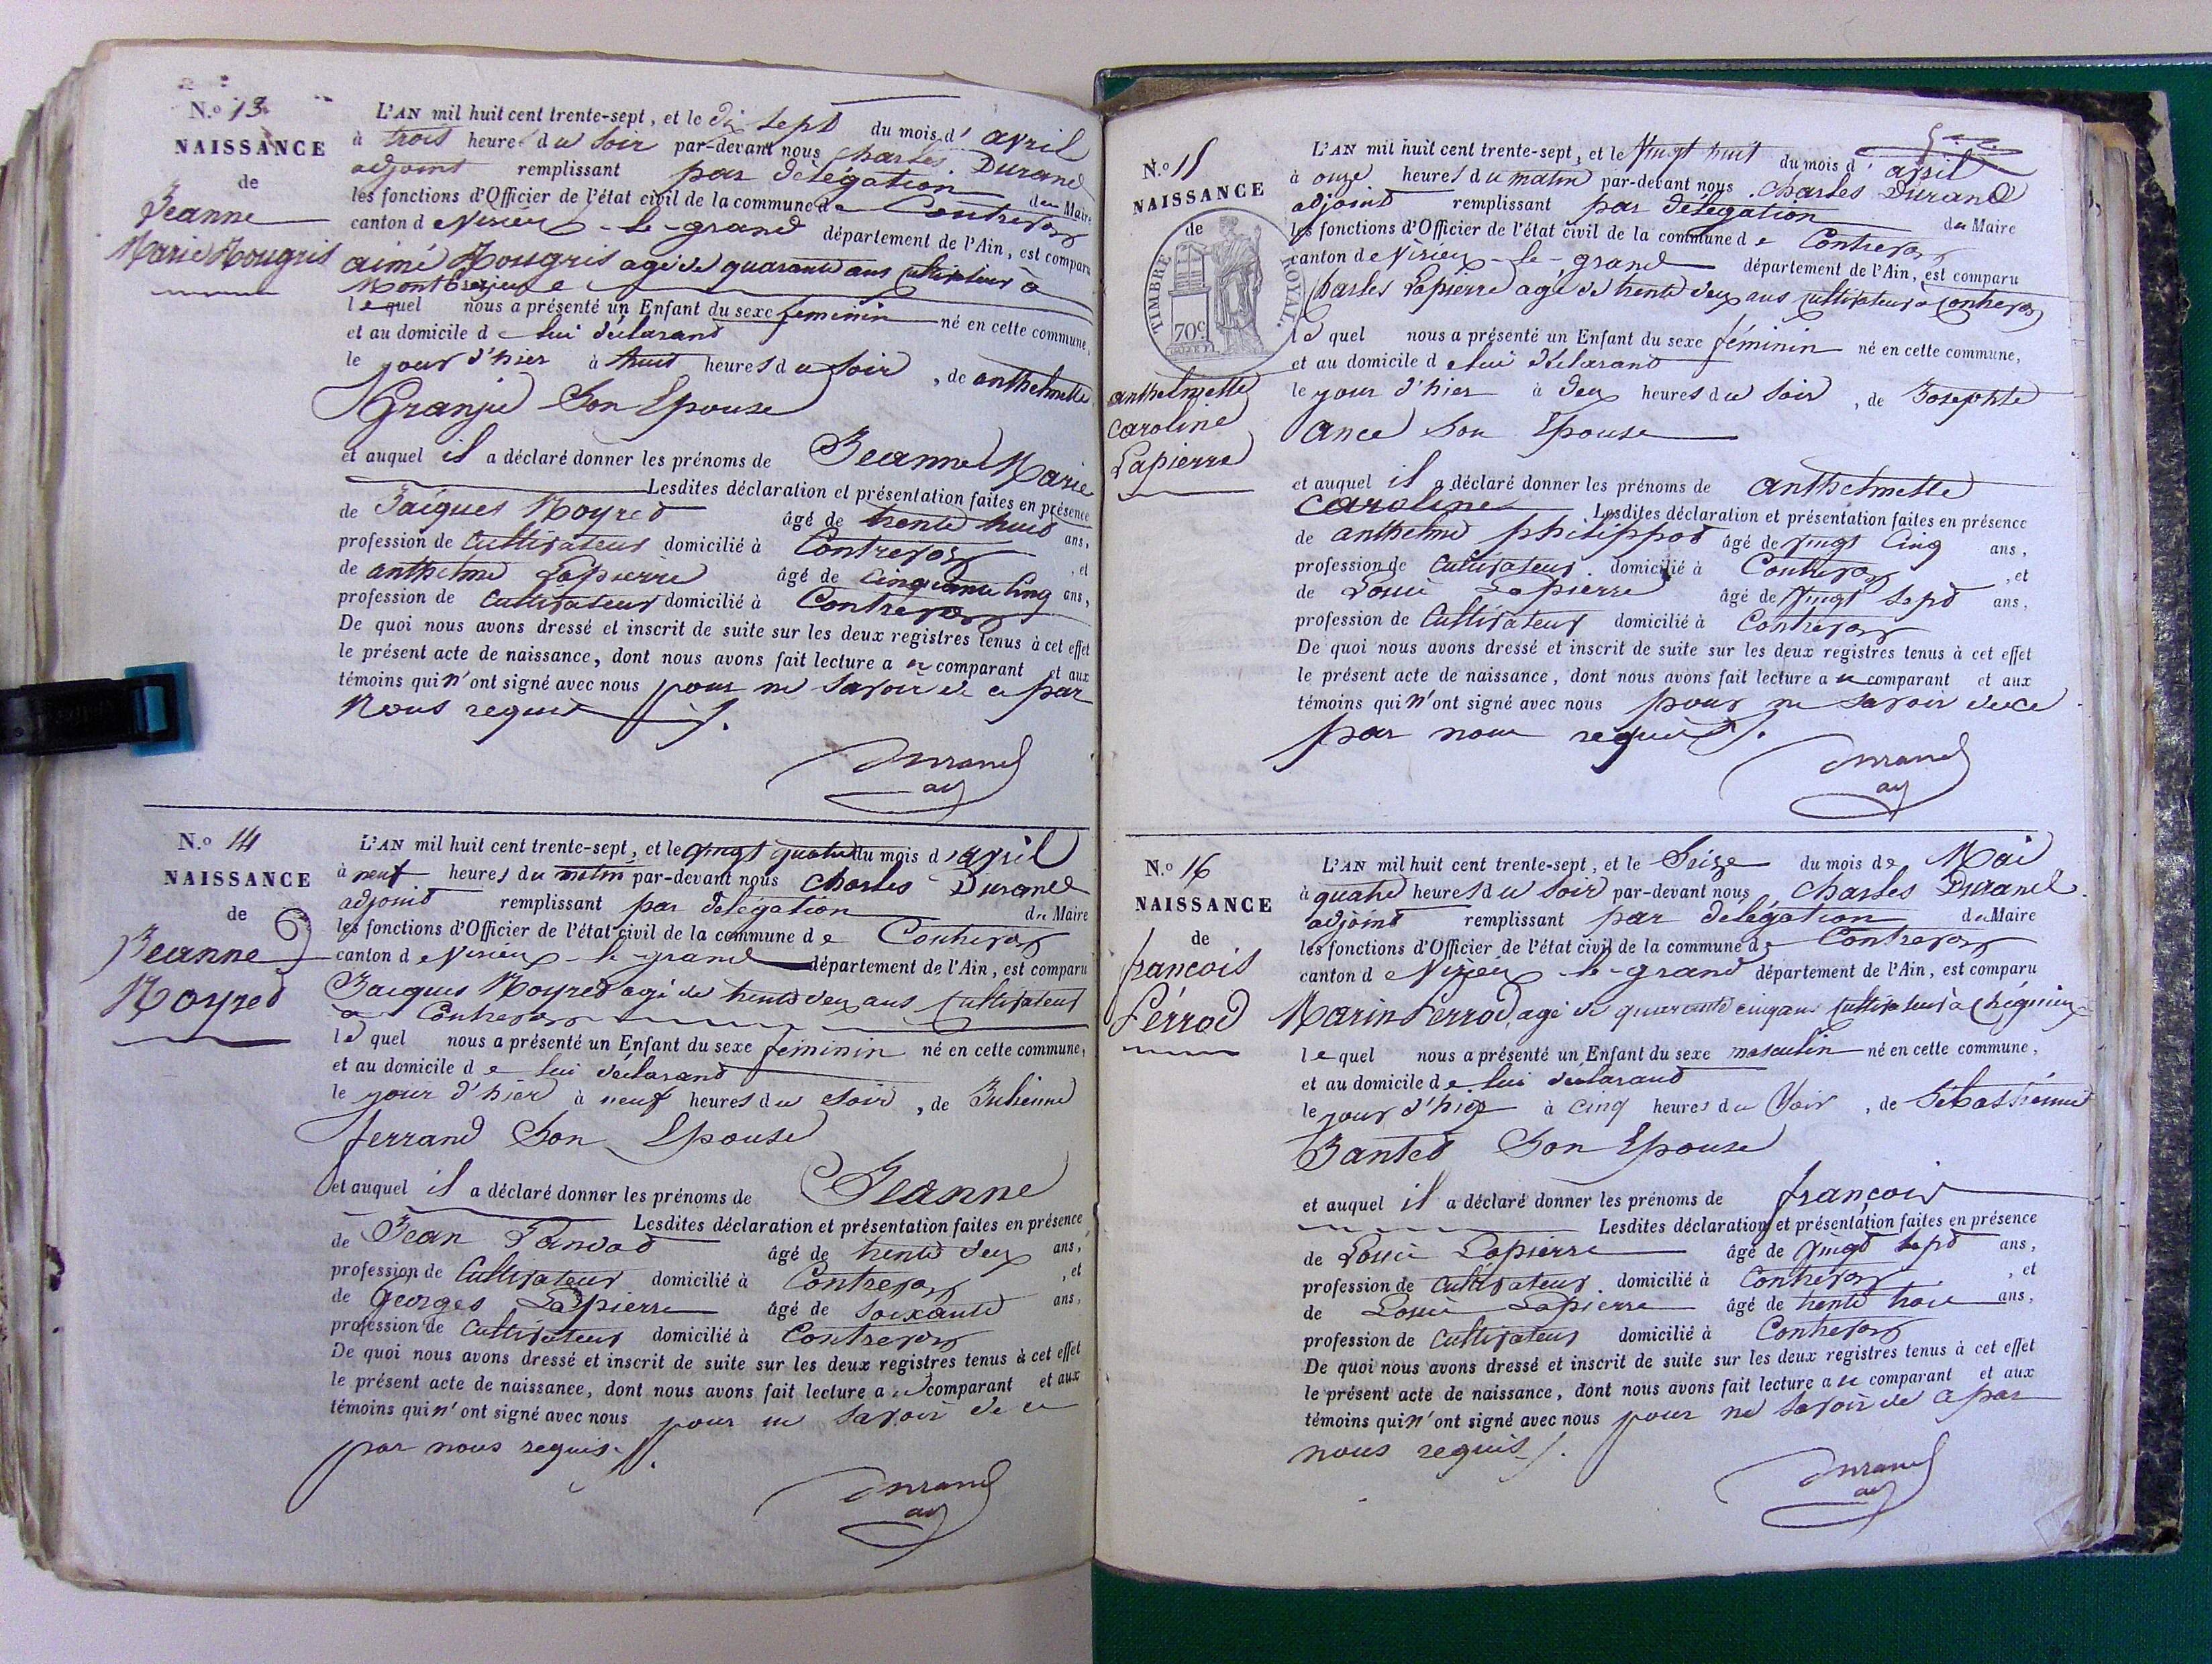 N.o 13
NAISSANCE
de
Jeanne
Marie Mougris
L'AN mil huit cent trente-sept, et le dix sept du mois d' avril
à trois heures du soir par-devant nous Charles Durand
adjoint remplissant par délégation du Maire
les fonctions d'Officier de l'état civil de la commune de Contrevoz
canton de Virieu-le-grand département de l'Ain, est comparu
aimé Mougris agé de quarante ans cultivateur à
Montbreyzieu
lequel nous a présenté un Enfant du sexe feminin né en cette commune,
et au domicile de lui déclarant
le jour d'hier à huit heures du soir, de anthelmette
Granjid Son Epouse
et auquel il a déclaré donner les prénoms de Jeanne Marie
Lesdites déclaration et présentation faites en présence
de Jacques Moyret âgé de trente huit ans,
profession de Cultivateur domicilié à Contrevoz, et
de anthelme Lapierre âgé de cinquante cinq ans,
profession de Cultivateur domicilié à Contrevoz
De quoi nous avons dressé et inscrit de suite sur les deux registres tenus à cet effet
le présent acte de naissance, dont nous avons fait lecture a ce comparant et aux
témoins qui n'ont signé avec nous pour ne savoir de ce par
Nous requis
Durand
adj
N.o 14
NAISSANCE
de
Jeanne
Moyred
L'AN mil huit cent trente-sept, et le vingt quatre du mois d'avril
à neuf heures du matin par-devant nous Charles Durand
adjoint remplissant par délégation du Maire
les fonctions d'Officier de l'état civil de la commune de Contrevoz
canton de Virieu-le-grand département de l'Ain, est comparu
Jacques Moyred agé de trente deux ans Cultivateur
à Contrevoz
lequel nous a présenté un Enfant du sexe feminin né en cette commune,
et au domicile de lui déclarant
le jour d'hier à neuf heures du soir, de Julienne
ferrand Son Epouse
et auquel il a déclaré donner les prénoms de Jeanne
Lesdites déclaration et présentation faites en présence
de Jean Pandod âgé de trente deux ans,
profession de Cultivateur domicilié à Contrevoz, et
de Georges Lapierre âgé de soixante ans,
profession de Cultivateur domicilié à Contrevoz
De quoi nous avons dressé et inscrit de suite sur les deux registres tenus à cet effet
le présent acte de naissance, dont nous avons fait lecture a ce comparant et aux
témoins qui n'ont signé avec nous pour ne savoir de ce
par nous requis.
Durand
adj
N.o 15
NAISSANCE
de
TIMBRE ROYAL.
70c.
anthelmette
Caroline
Lapierre
L'AN mil huit cent trente-sept, et le Vingt huit du mois d' avril
à onze heures du matin par-devant nous Charles Durand
adjoint remplissant par délégation du Maire
les fonctions d'Officier de l'état civil de la commune de Contrevoz
canton de Virieu-le-grand département de l'Ain, est comparu
Charles Lapierre agé de trente deux ans cultivateur à Contrevoz
lequel nous a présenté un Enfant du sexe féminin né en cette commune,
et au domicile de lui déclarant
le jour d'hier à deux heures du soir, de Josephte
Ance Son Epouse
et auquel il a déclaré donner les prénoms de anthelmette
Caroline Lesdites déclaration et présentation faites en présence
de anthelme philippot âgé de vingt Cinq ans,
profession de Cultivateur domicilié à Contrevoz, et
de Louis Lapierre âgé de vingt sept ans,
profession de Cultivateur domicilié à Contrevoz
De quoi nous avons dressé et inscrit de suite sur les deux registres tenus à cet effet
le présent acte de naissance, dont nous avons fait lecture a ce comparant et aux
témoins qui n'ont signé avec nous pour ne savoir de ce
par nous requis.
Durand
adj
N.o 16
NAISSANCE
de
francois
Perrod
L'AN mil huit cent trente-sept, et le Seize du mois de Mai
à quatre heures du soir par-devant nous, Charles Durand
adjoint remplissant par delegation du Maire
les fonctions d'Officier de l'état civil de la commune de Contrevoz
canton de Virieu-le-grand département de l'Ain, est comparu
Marin Perrod, agé de quarante cinq ans cultivateur à Chégnieu
lequel nous a présenté un Enfant du sexe masculin né en cette commune,
et au domicile de lui déclarant
le jour d'hier à cinq heures du soir, de Sébastienne
Jantet Son Epouse
et auquel il a déclaré donner les prénoms de françois
Lesdites déclaration et présentation faites en présence
de Louis Lapierre âgé de vingt sept ans,
profession de Cultivateur domicilié à Contrevoz, et
de Louis Lapierre âgé de trente trois ans,
profession de Cultivateur domicilié à Contrevoz
De quoi nous avons dressé et inscrit de suite sur les deux registres tenus à cet effet
le présent acte de naissance, dont nous avons fait lecture a ce comparant et aux
témoins qui n'ont signé avec nous pour ne savoir de ce par
nous requis.
Durand
adj